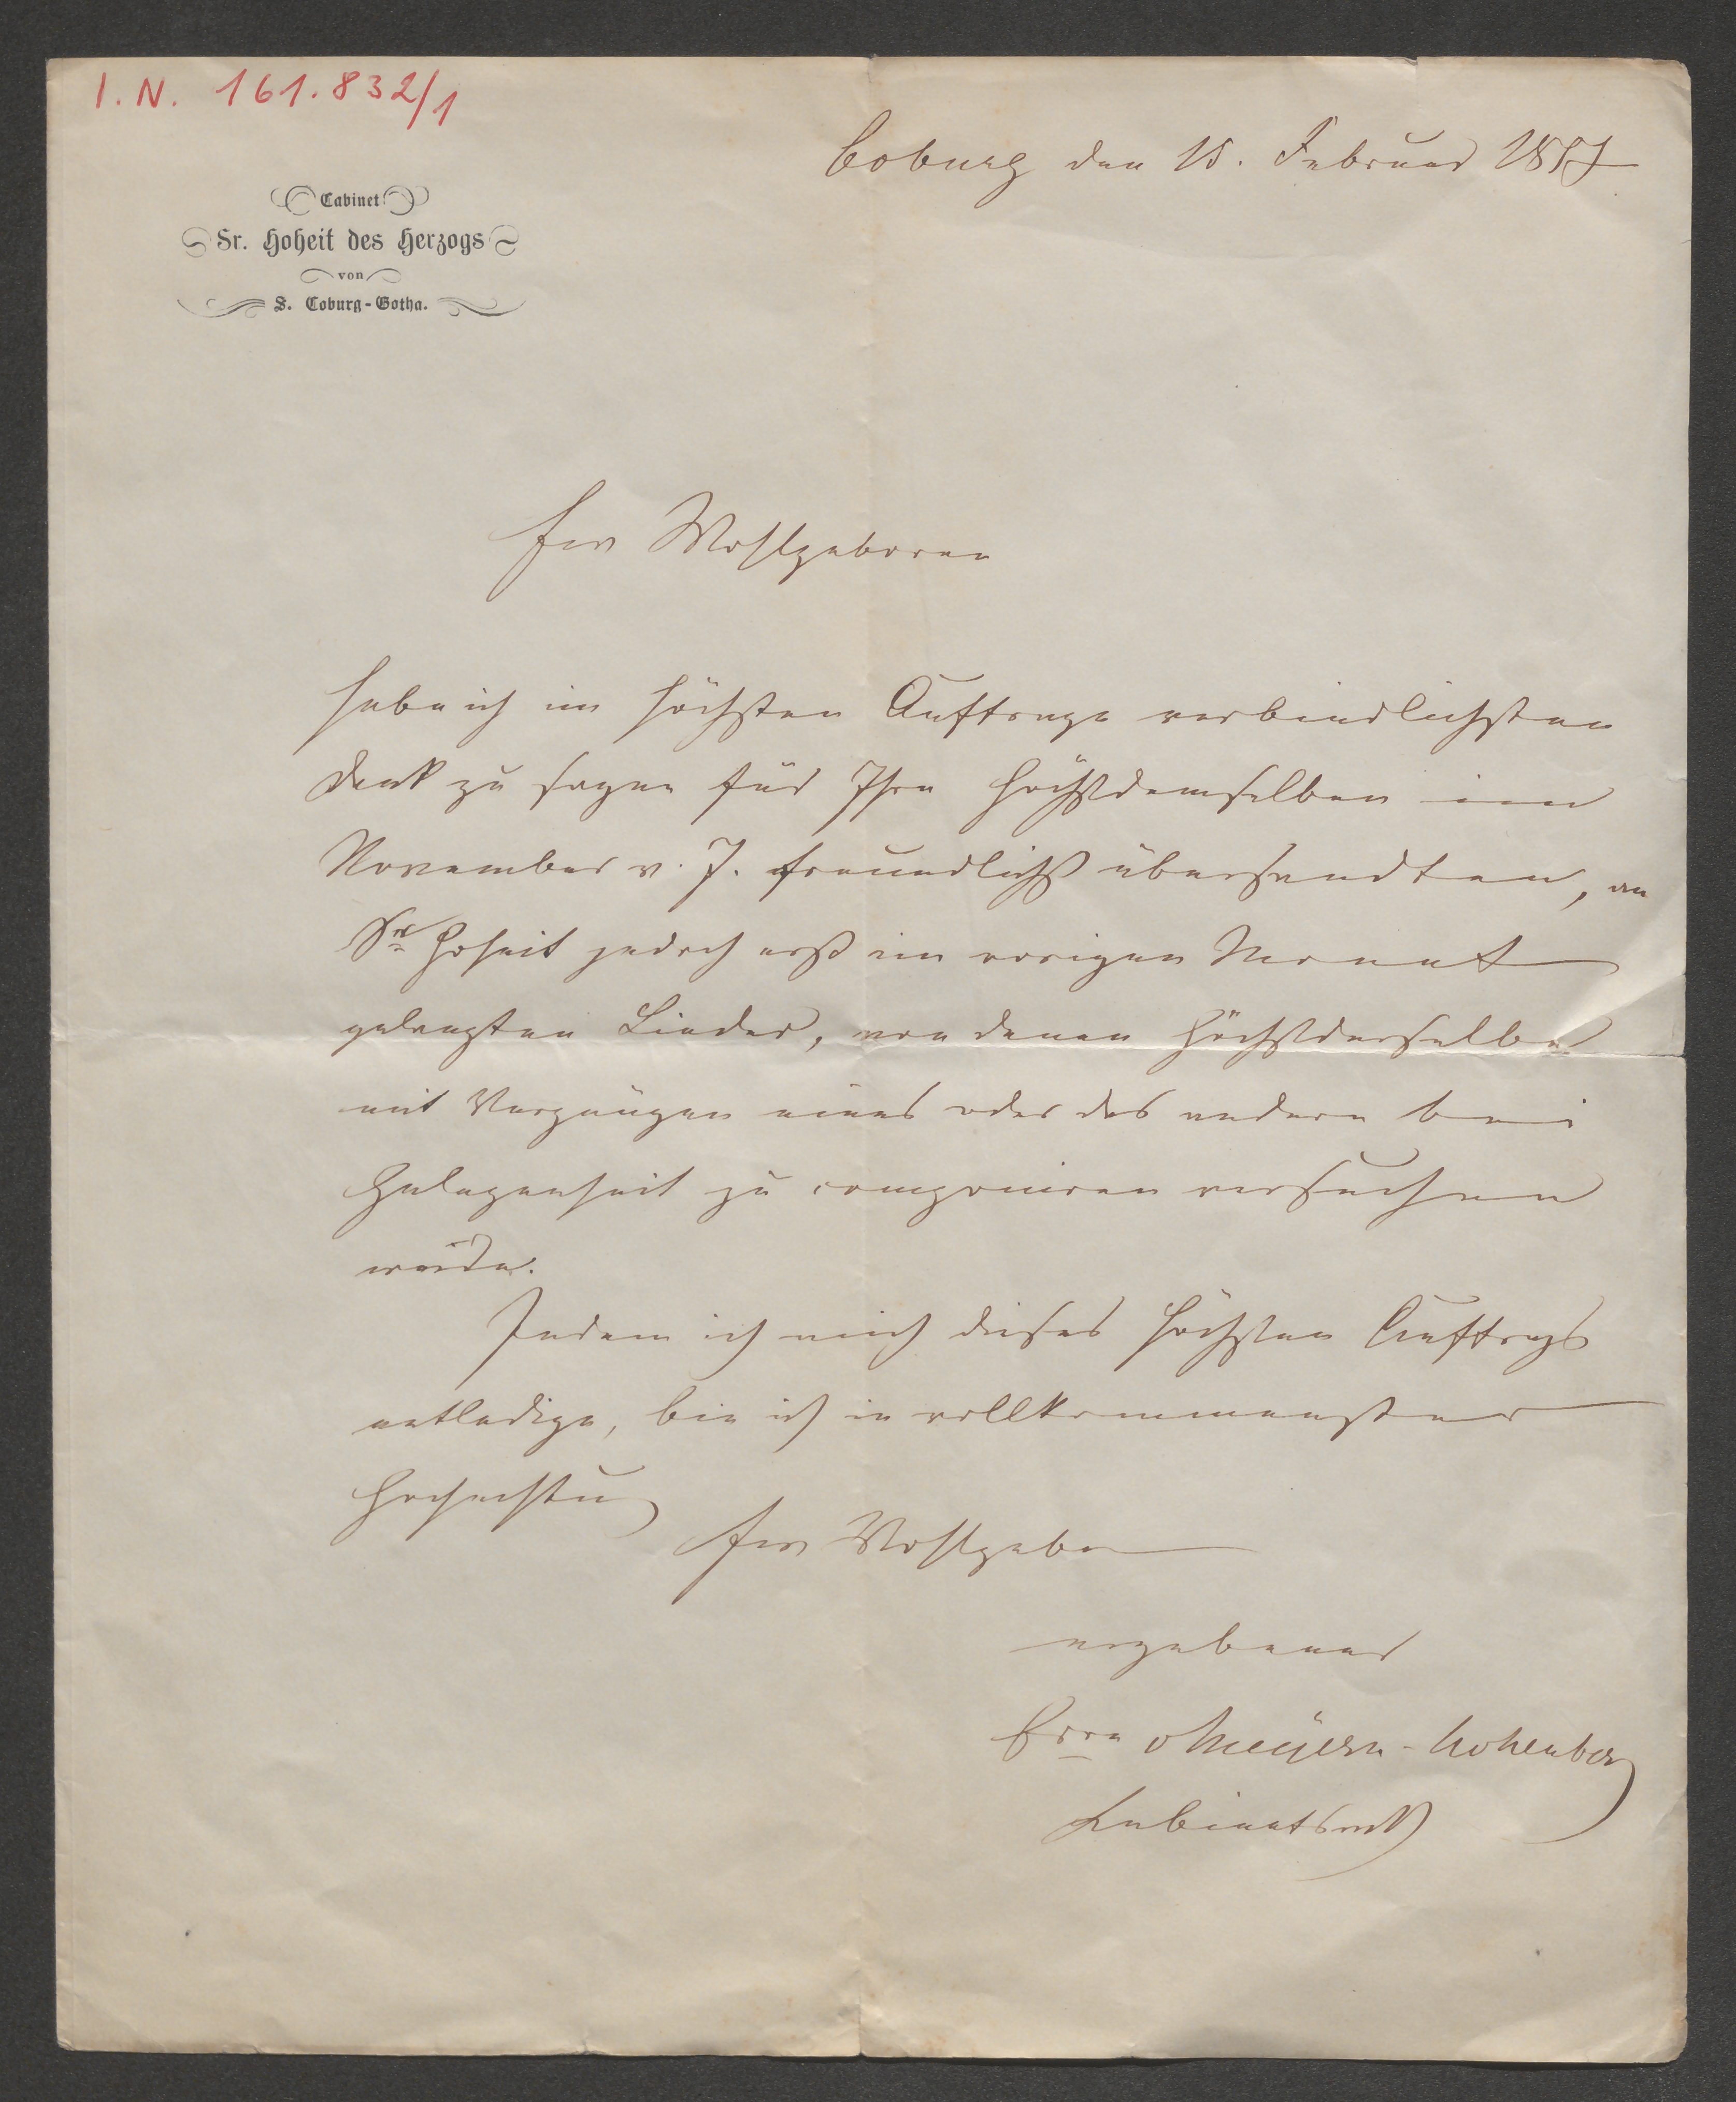 I. N. 161.832/1
Coburg den 15. Februar 1857
Cabinet
Sr. Hoheit des Herzogs
von
S. Coburg-Gotha.
Ew Wohlgeboren
habe ich im höchsten Auftrage verbindlichsten
Dank zu sagen für Ihre Höchstdemselben im
November v. J. freundlichst übersendten, an
Se Hoheit jedoch erst im vorigen Monat
gelangten Lieder, von denen Höchstderselbe
mit Vergnügen eines oder das andere bei
Gelegenheit zu componiren versuchen
würde.
Indem ich mich dieses höchsten Auftrags
entledige, bin ich in vollkommenster
Hochachtung
Ew Wohlgeboren
ergebener
v Meyern-Hohenberg
Kabinetsrath